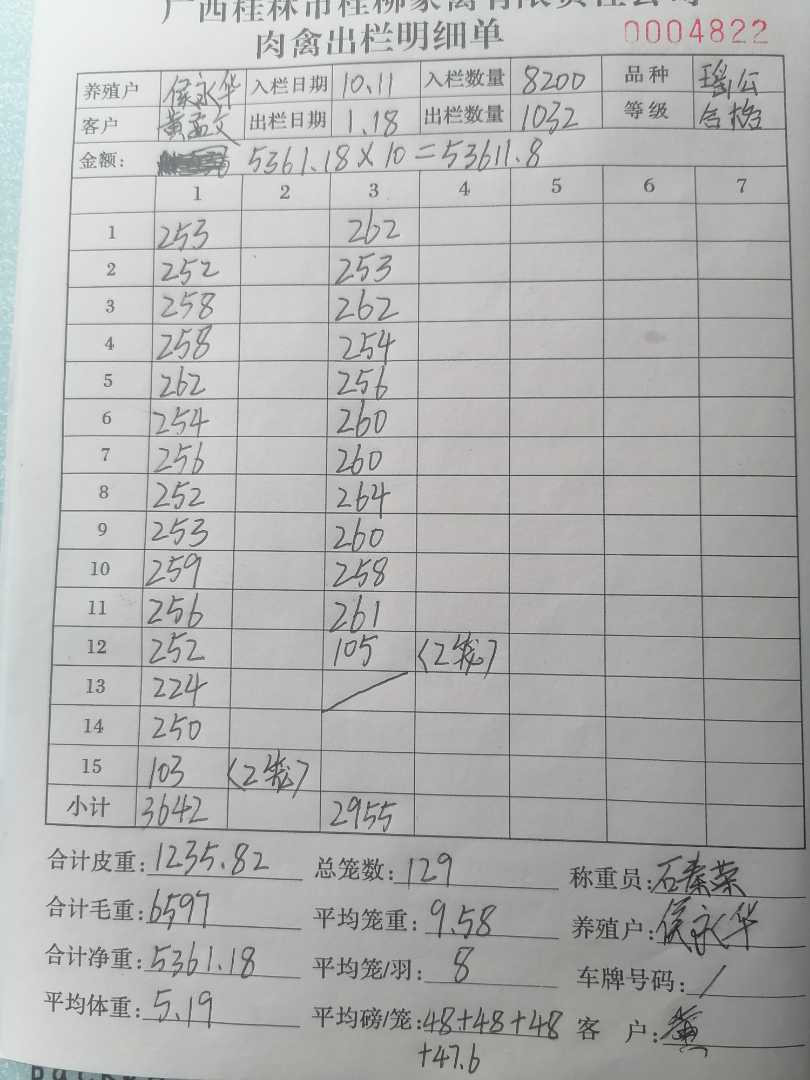 广西桂林市桂柳家禽有限责任公司
肉禽出栏明细单 0004822
养殖户 侯永华 入栏日期 10.11 入栏数量 8200 品种 瑶公
客户 黄孟文 出栏日期 1.18 出栏数量 1032 等级 合格
金额: 5361.18×10=53611.8
1 2 3 4 5 6 7
1 253 262
2 252 253
3 258 262
4 258 254
5 262 256
6 254 260
7 256 260
8 252 264
9 253 260
10 259 258
11 256 261
12 252 105 (2笼)
13 224
14 250
15 103 (2笼)
小计 3642 2955
合计皮重:1235.82 总笼数:129 称重员:石秦荣
合计毛重:6597 平均笼重:9.58 养殖户:侯永华
合计净重:5361.18 平均笼/羽:8 车牌号码:/
平均体重:5.19 平均磅/笼:48+48+48 客户:黄
+47.6